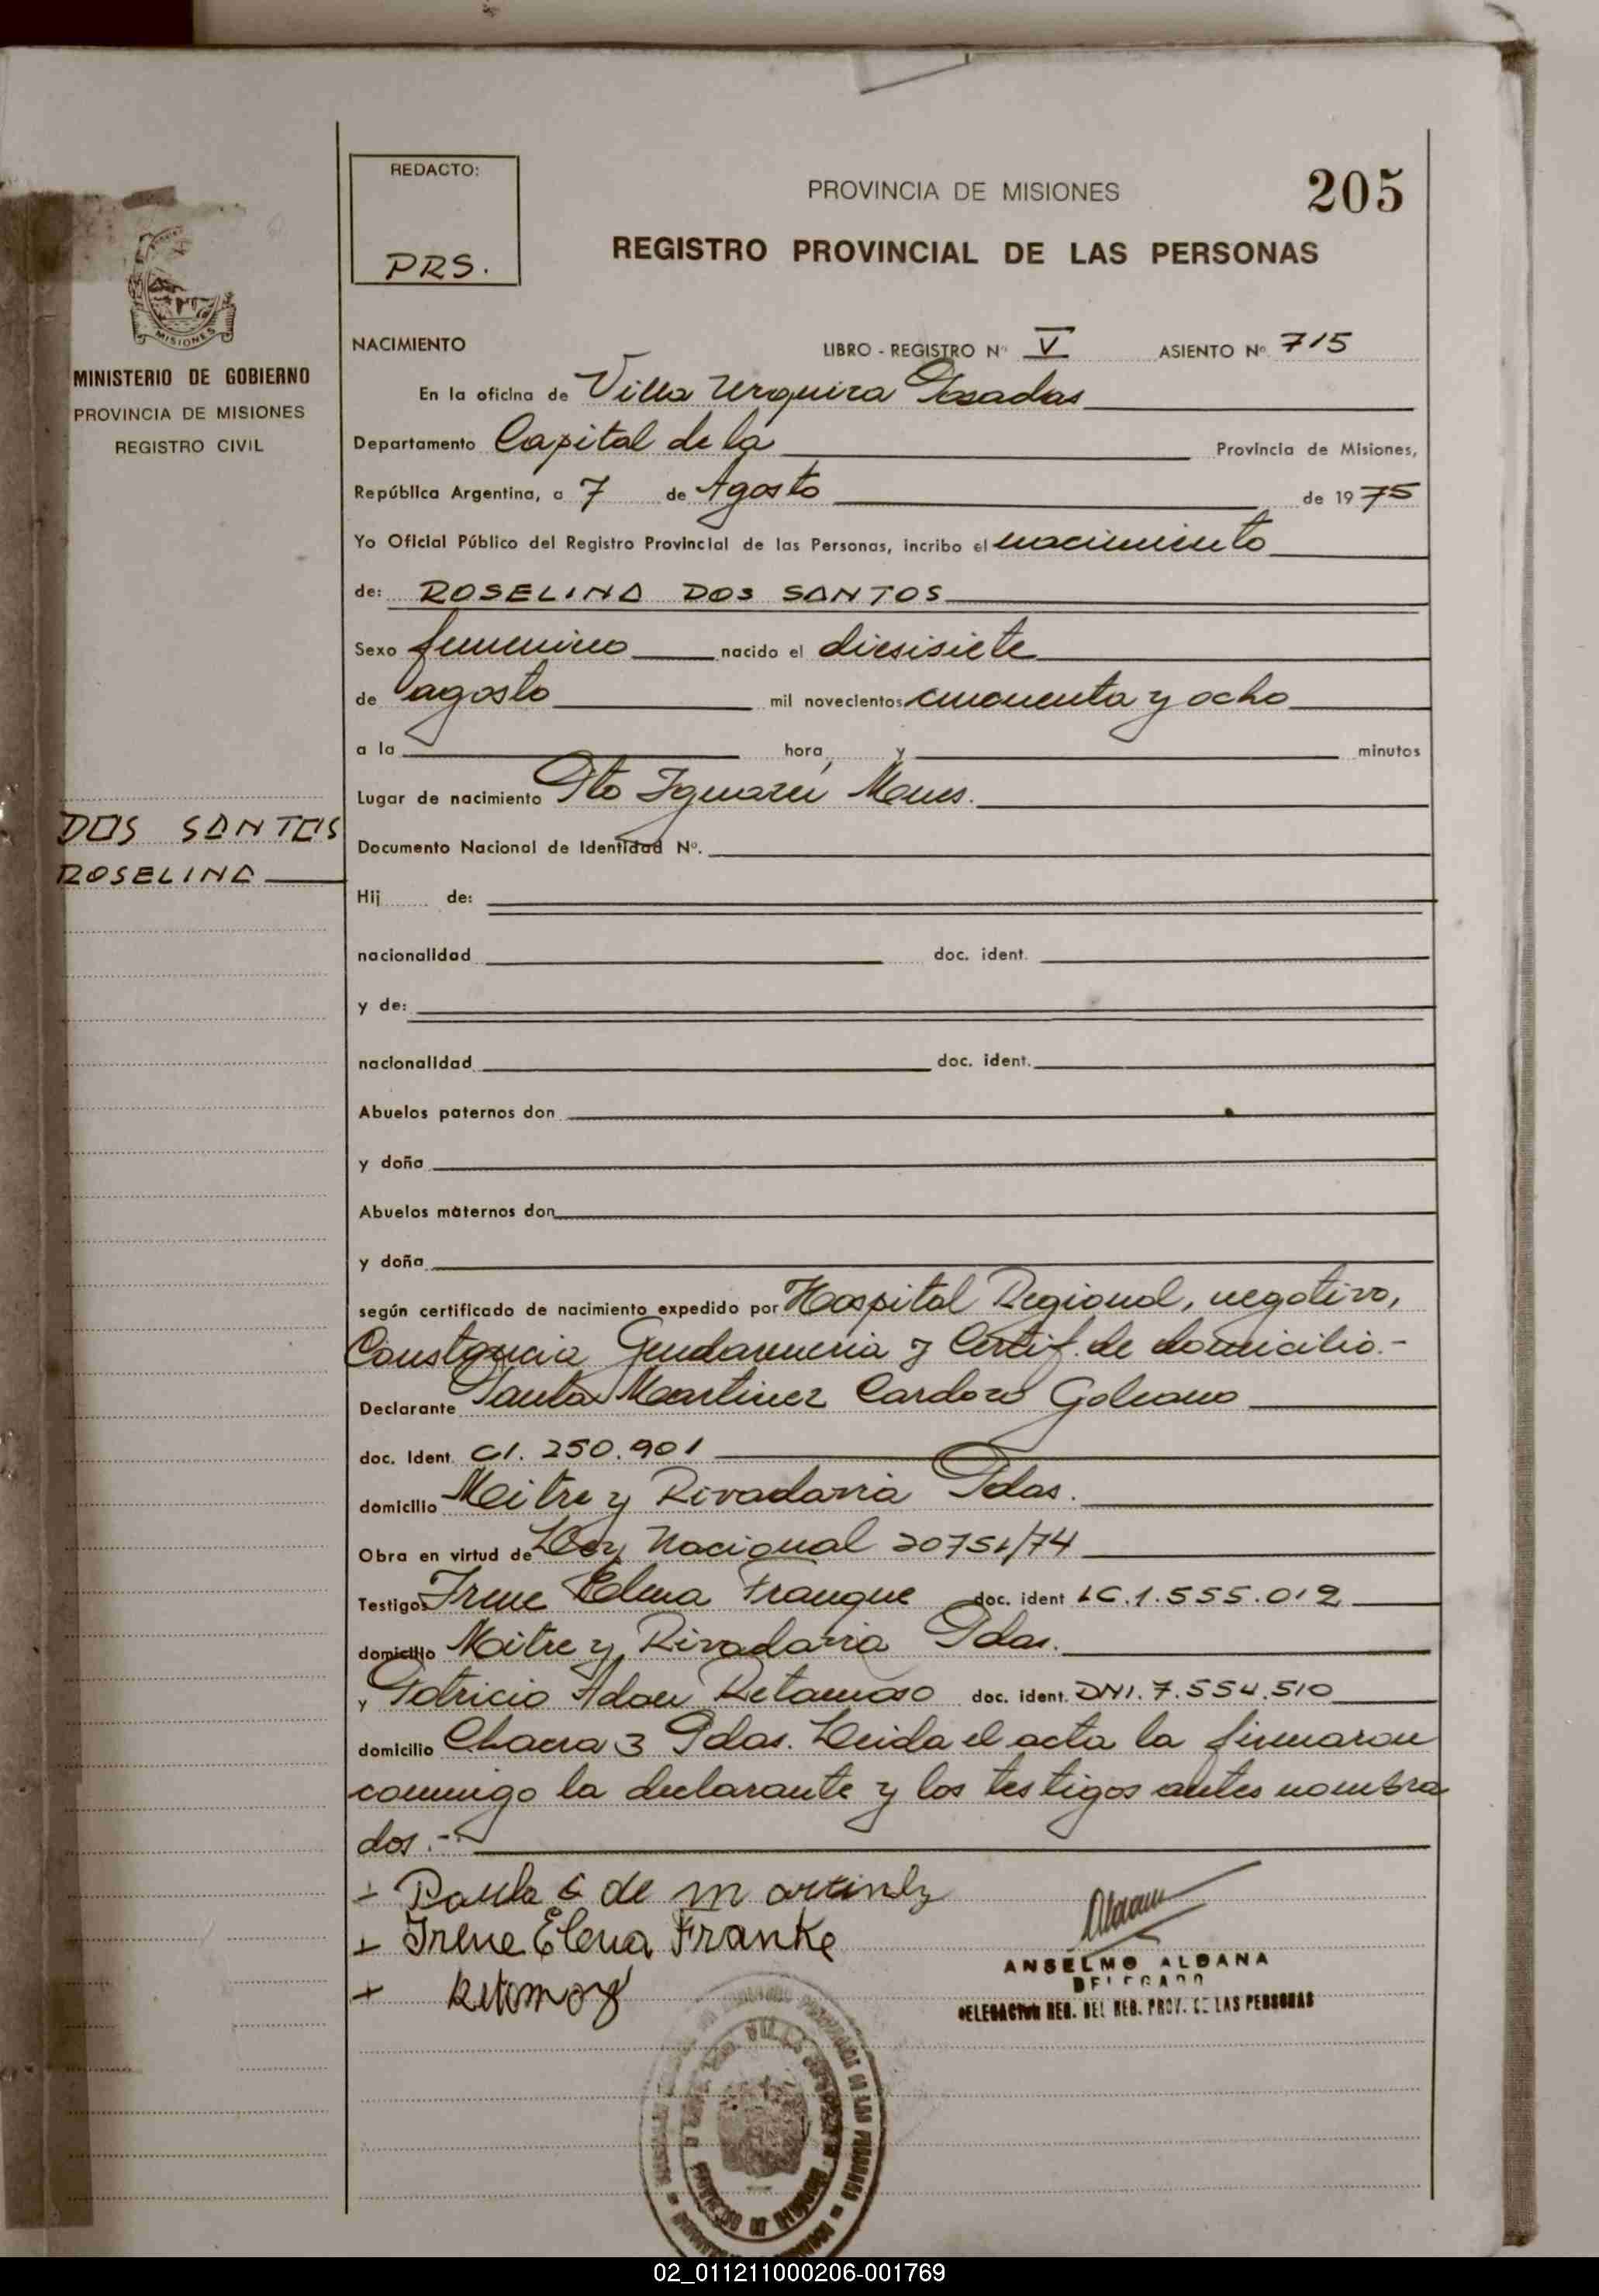 REDACTO:
PRS.
PROVINCIA DE MISIONES
205
REGISTRO PROVINCIAL DE LAS PERSONAS
MISIONES
MINISTERIO DE GOBIERNO
PROVINCIA DE MISIONES
REGISTRO CIVIL
DOS SANTOS
ROSELINA
NACIMIENTO LIBRO - REGISTRO Nº V ASIENTO Nº 715
En la oficina de Villa Urquiza Posadas
Departamento Capital de la Provincia de Misiones,
República Argentina, a 7 de Agosto de 1975
Yo Oficial Público del Registro Provincial de las Personas, incribo el nacimiento
de: ROSELINA DOS SANTOS
Sexo femenino nacido el diesisiete
de agosto mil novecientos cincuenta y ocho
a la hora y minutos
Lugar de nacimiento Pto Iguazú Mnes.
Documento Nacional de Identidad Nº.
Hij de:
nacionalidad doc. ident.
y de:
nacionalidad doc. ident.
Abuelos paternos don
y doña
Abuelos maternos don
y doña
según certificado de nacimiento expedido por Hospital Regional, negativo,
Constancia Gendarmeria y Certif. de domicilio.-
Declarante Martinez Cardozo Goleano
doc. Ident. CI. 250.901
domicilio Mitre y Rivadavia Pdas.
Obra en virtud de Ley Nacional 20751/74
Testigos Irene Elena Franque doc. ident LC.1.555.012
domicilio Mitre y Rivadavia Pdas.
y Patricio Adan Retamoso doc. ident. DNI. 7.554.510
domicilio Chacra 3 Pdas. Leida el acta la firmaron
conmigo la declarante y los testigos antes nombra
dos.-
Paula G de Martinez
Irene Elena Franke
ANSELMO ALDANA
DELEGADO
DELEGACION REG. DEL REG. PROV. DE LAS PERSONAS
02_011211000206-001769